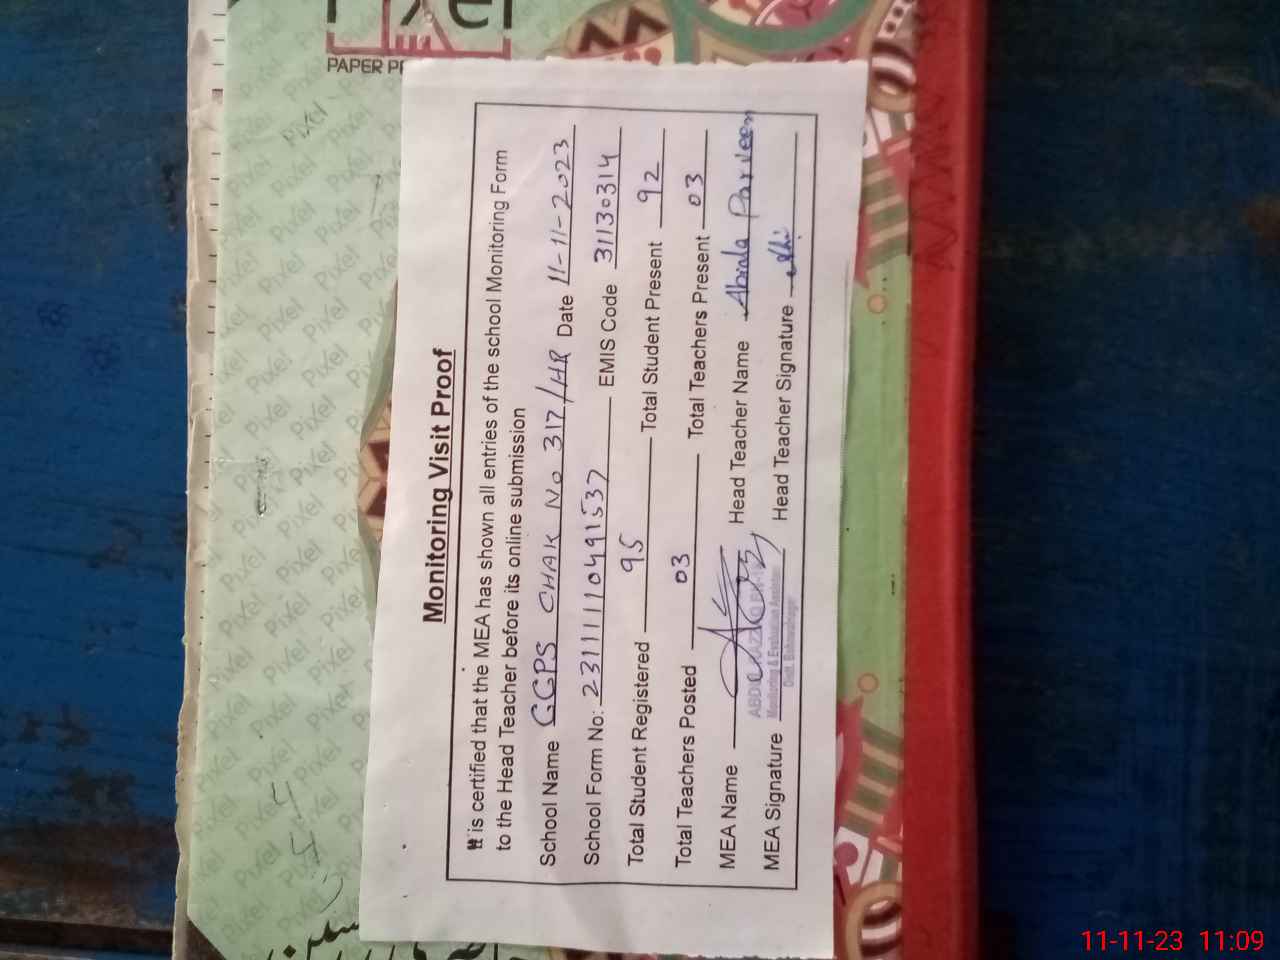 Pixel
PAPER PR
Monitoring Visit Proof
It is certified that the MEA has shown all entries of the school Monitoring Form
to the Head Teacher before its online submission
School Name GGPS CHAK No 317/HR Date 11-11-2023
School Form No: 231111110491537 EMIS Code 31130314
Total Student Registered 95 Total Student Present 92
Total Teachers Posted 03 Total Teachers Present 03
MEA Name Head Teacher Name Abida Parveen
MEA Signature Head Teacher Signature
Monitoring & Evaluation Assistant
Distt. Bahawalnagar
11-11-23 11:09